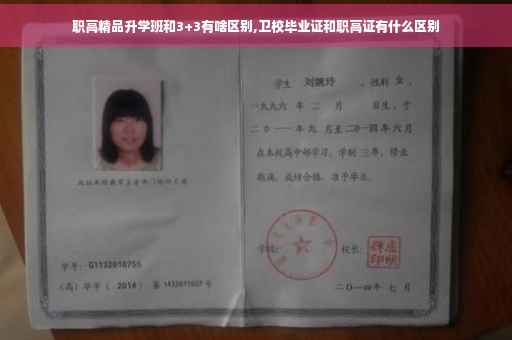 职高精品升学班和3+3有啥区别,卫校毕业证和职高证有什么区别
学生 刘婉玲 ,性别 女 ,
一九九六 年 二 月 日生,于
二〇一一年 九 月至二〇一四年 六 月
在本校高中部学习,学制 三年,修业
期满,成绩合格,准予毕业。
学校:
校长:
学号: G1132010755
(高)毕字( 2014 )第 1432011027 号
二〇一四年 七 月